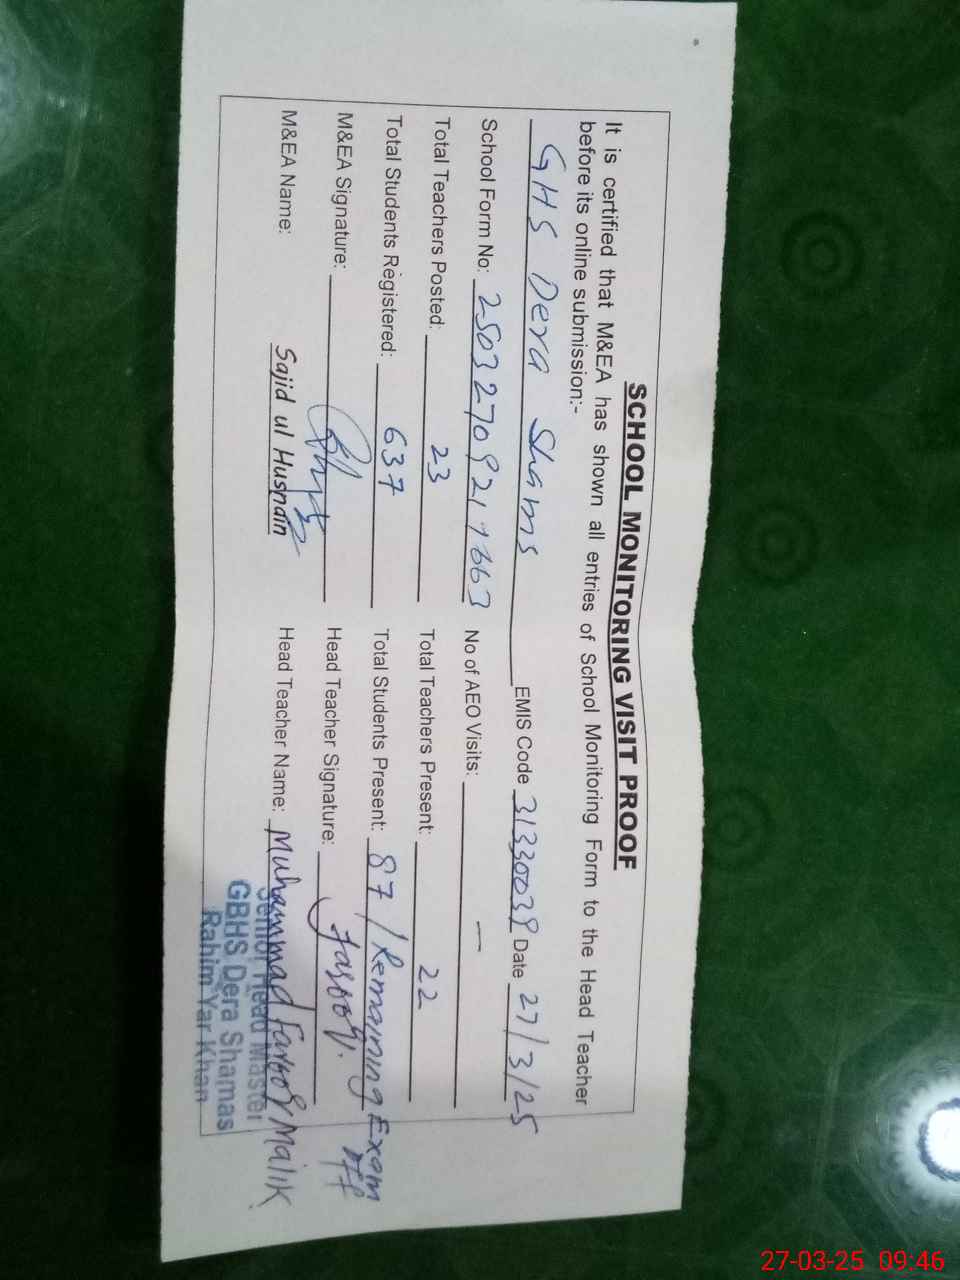 SCHOOL MONITORING VISIT PROOF
It is certified that M&EA has shown all entries of School Monitoring Form to the Head Teacher
before its online submission:-
GHS Dera Shams EMIS Code 31330039 Date 27/3/25
School Form No: No of AEO Visits: —
Total Teachers Posted: 23 Total Teachers Present: 22
Total Students Registered: 637 Total Students Present: 87 / Remaining Exam
off
M&EA Signature: Head Teacher Signature: Farooq.
M&EA Name: Sajid ul Husnain Head Teacher Name: Muhammad Farooq Malik
Senior Head Master
GBHS Dera Shamas
Rahim Yar Khan
27-03-25 09:46